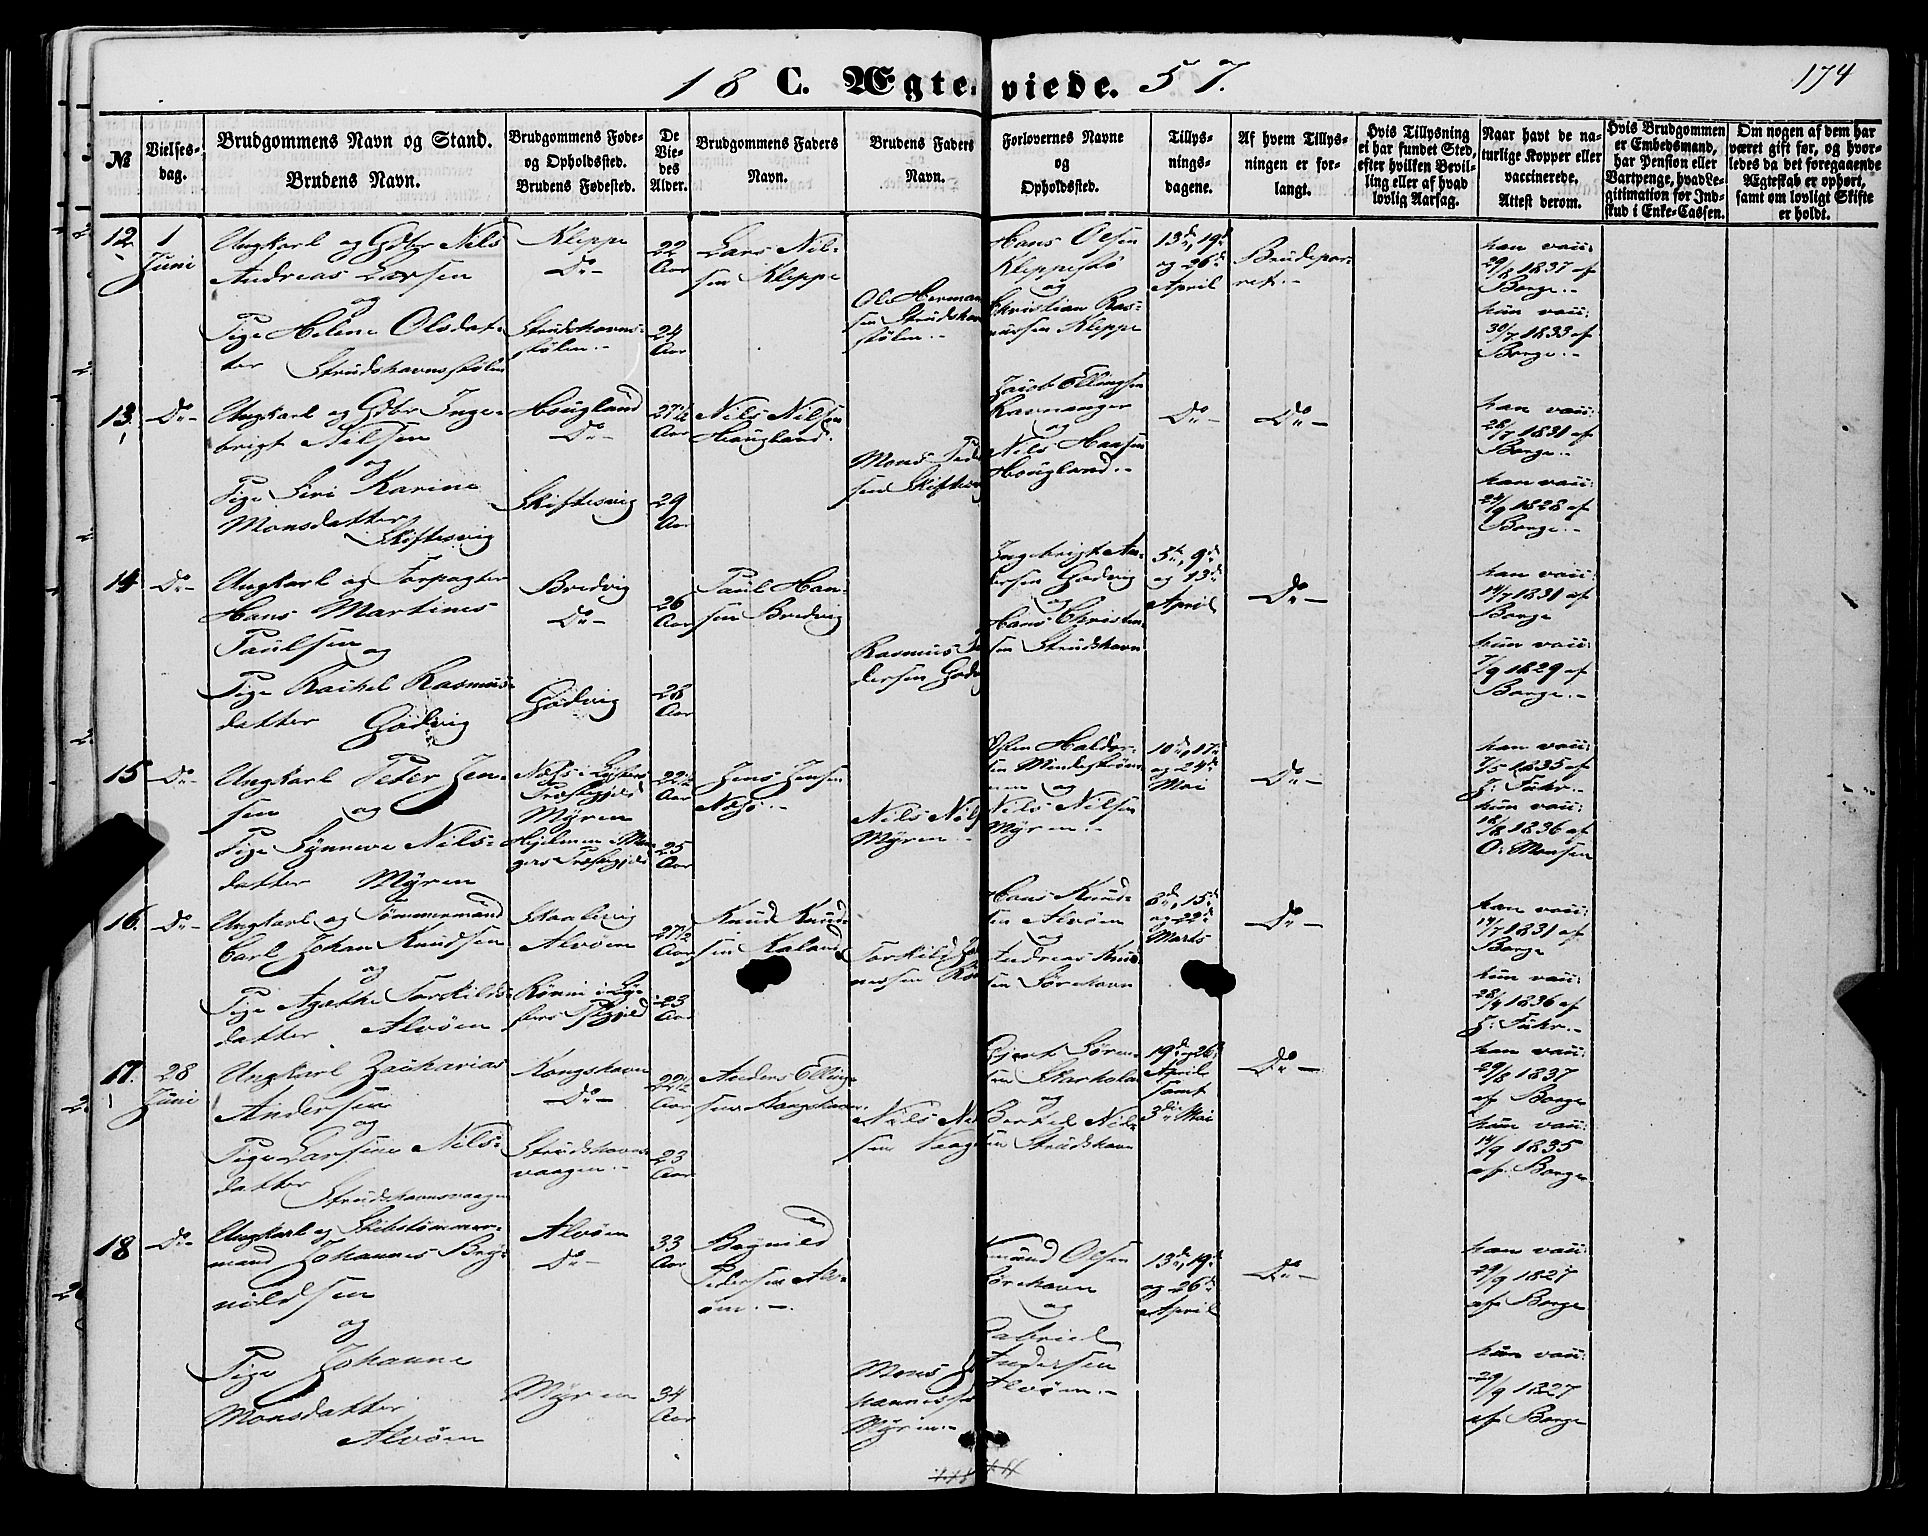 18 C. Ægte viede. 57.
174
№
Vielses-
dag.
Brudgommens Navn og Stand.
Brudens Navn.
Brudgommens Føde-
og Opholdssted.
Brudens Fødested.
De
Vie-
des
Alder.
Brudgommens Faders
Navn.
Brudens Faders
Navn.
Forlovernes Navne
og
Opholdssted.
Tillys-
nings-
dagene.
Af hvem Tillys-
ningen er for-
langt.
Hvis Tillysning
ei har fundet Sted,
efter hvilken Bevil-
ling eller af hvad
lovlig Aarsag.
Naar havt de na-
turlige Kopper eller
vaccinerede.
Attest derom.
Hvis Brudgommen
er Embedsmand,
har Pension eller
Vartpenge, hvad Le-
gitimation for Ind-
skud i Enke-Cassen.
Om nogen af dem har
været gift før, og hvor-
ledes da det foregaaende
Ægteskab er ophørt,
samt om lovligt Skifte
er holdt.
12
1
Juni
Ungkarl og Gbr Nils
Andreas Larsen
og
Pige Helene Olsdat-
ter Strudshavnsstølen
Kleppe
Do-
Strudshavns-
stølen.-
22
Aar
24
Aar
Lars Nil-
sen Kleppe
Ole Herman
sen Strudshavn
stølen.-
Hans Olsen
Kleppestø
og
Christian Ras-
mussen Kleppe
13d, 19d
og 26d
April
Brudepar-
ret.-
han vac:
29/8 1837 af
Borge.-
hun vac:
30/7 1833 af
Borge.-
13
Do-
Ungkarl og Gbr Inge-
brigt Nilsen
og
Pige Siri Karine
Monsdatter
Skiftesvig
Hougland
Do-
Skiftesvig
27½
Aar
29
Aar
Nils Nilsen
Hougland.
Mons Peder
sen Skiftesv
Jacob Ellingsen
Ravnanger
og
Nils Hansen
Hougland.-
Do-
Do-
han vac:
28/7 1831 af
Borge.-
hun vac:
24/9 1828 af
Borge.-
14
Do-
Ungkarl og Forpagter
Hans Martines
Paulsen
og
Pige Rachel Rasmus-
datter Godvig
Bredvig
Do-
Godvig
26
Aar
28
Aar
Paul Han-
sen Bredvig
Rasmus Pe
dersen Godv
Ingebrigt An-
dersen Godvig
og
Hans Christen
sen Strudshavn
5te, 9d
og 13d
April
Do-
han vac:
14/7 1831 af
Borge
hun vac:
7/9 1829 af
Borge.-
15
Do-
Ungkarl Peter Jen-
sen og
Pige Synneve Nils-
datter Myren
Næss i Lysters
Præstegjeld
Myren
22½
Aar
25
Aar
Jens Jensen
Næss.-
Nils Nil
Myren.-
Halvor-
og
Nils Nilsen
Myren.-
10d, 17d
og 24d
Mai
Do-
han vac:
7/5 1835 af
J: Fuhr.-
hun vac:
18/8 1836 af
O: Monsen
16.
Do-
Ungkarl og Tømmermand
Carl Johan Knudsen
og
Pige Agathe Torkilds-
datter Alvøen
Skaalevig
Alvøen
27½
Aar
23
Aar
Knud Knud-
sen
Torkild Jo
nessen
Hans Knud-
sen Alvøen
og
Andreas Knud
sen Sørehavn
8d, 15d
og 22d
Marts
Do-
han vac:
14/7 1831 af
Borge
hun vac:
28/9 1836 af
J: Fuhr.-
17.
28
Juni
Ungkarl Zacharias
Andersen
og
Pige Larsine Nils-
datter
Strudshavnsvaagen
Kongshavn
Do-
Strudshavns-
vaagen.-
22½
Aar
23
Aar
Anders Elling-
sen Kongshavn
Nils Nil
sen Vaagen
Gjert Søren-
sen Skarholm
og
Bertel Nil-
sen Strudshavn
19d, 26d
April
samt
3die Mai
Do-
han vac:
29/8 1837
af Borge
hun vac:
14/9 1835
af Borge
18
Do-
Ungkarl og Skibstømmer-
mand Johannes Bryn-
nildsen
og
Pige Johanne
Monsdatter
Alvøen
Alvøen
Do-
Myren
33
Aar
34
Aar
Brynild
Pedersen Alv-
øen.-
Mons Jo
hannessen
Myren.-
Amund Olsen
Sørehavn
og
Gabriel
Andersen
Alvøen.-
13d, 19d
og 26d
April
Do-
han vac:
29/9 1827
af Borge
hun vac:
29/9 1827
af Borge